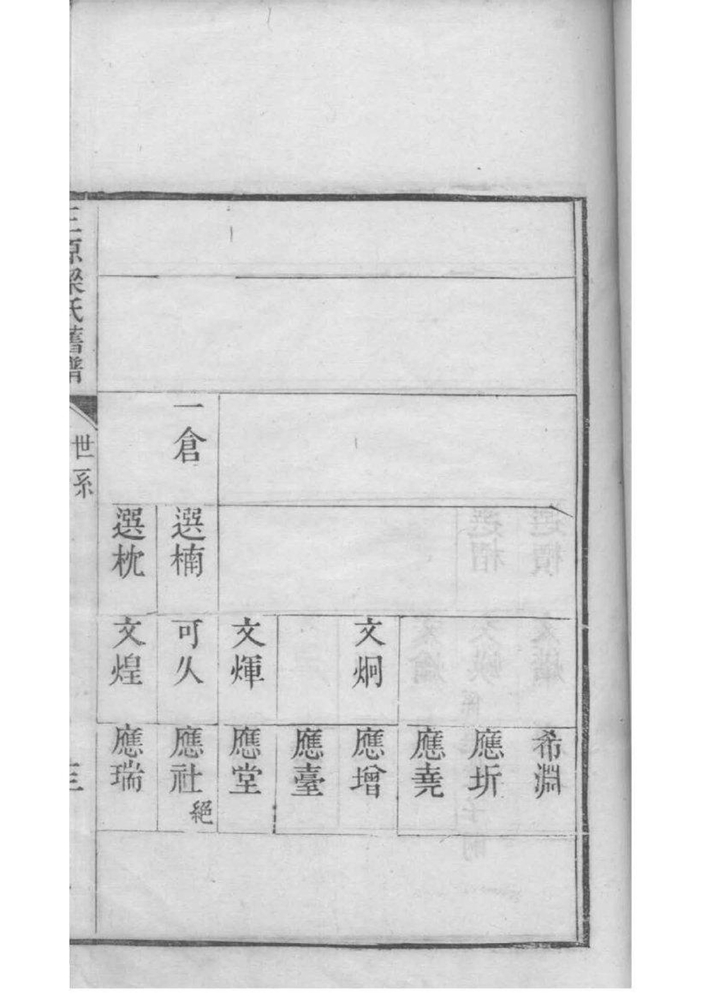 希淵
應圻
應堯
文炯
應增
應臺
文煇
應堂
一倉
選楠
可久
應社
絕
選枕
文煌
應瑞
三原梁氏舊譜
世系